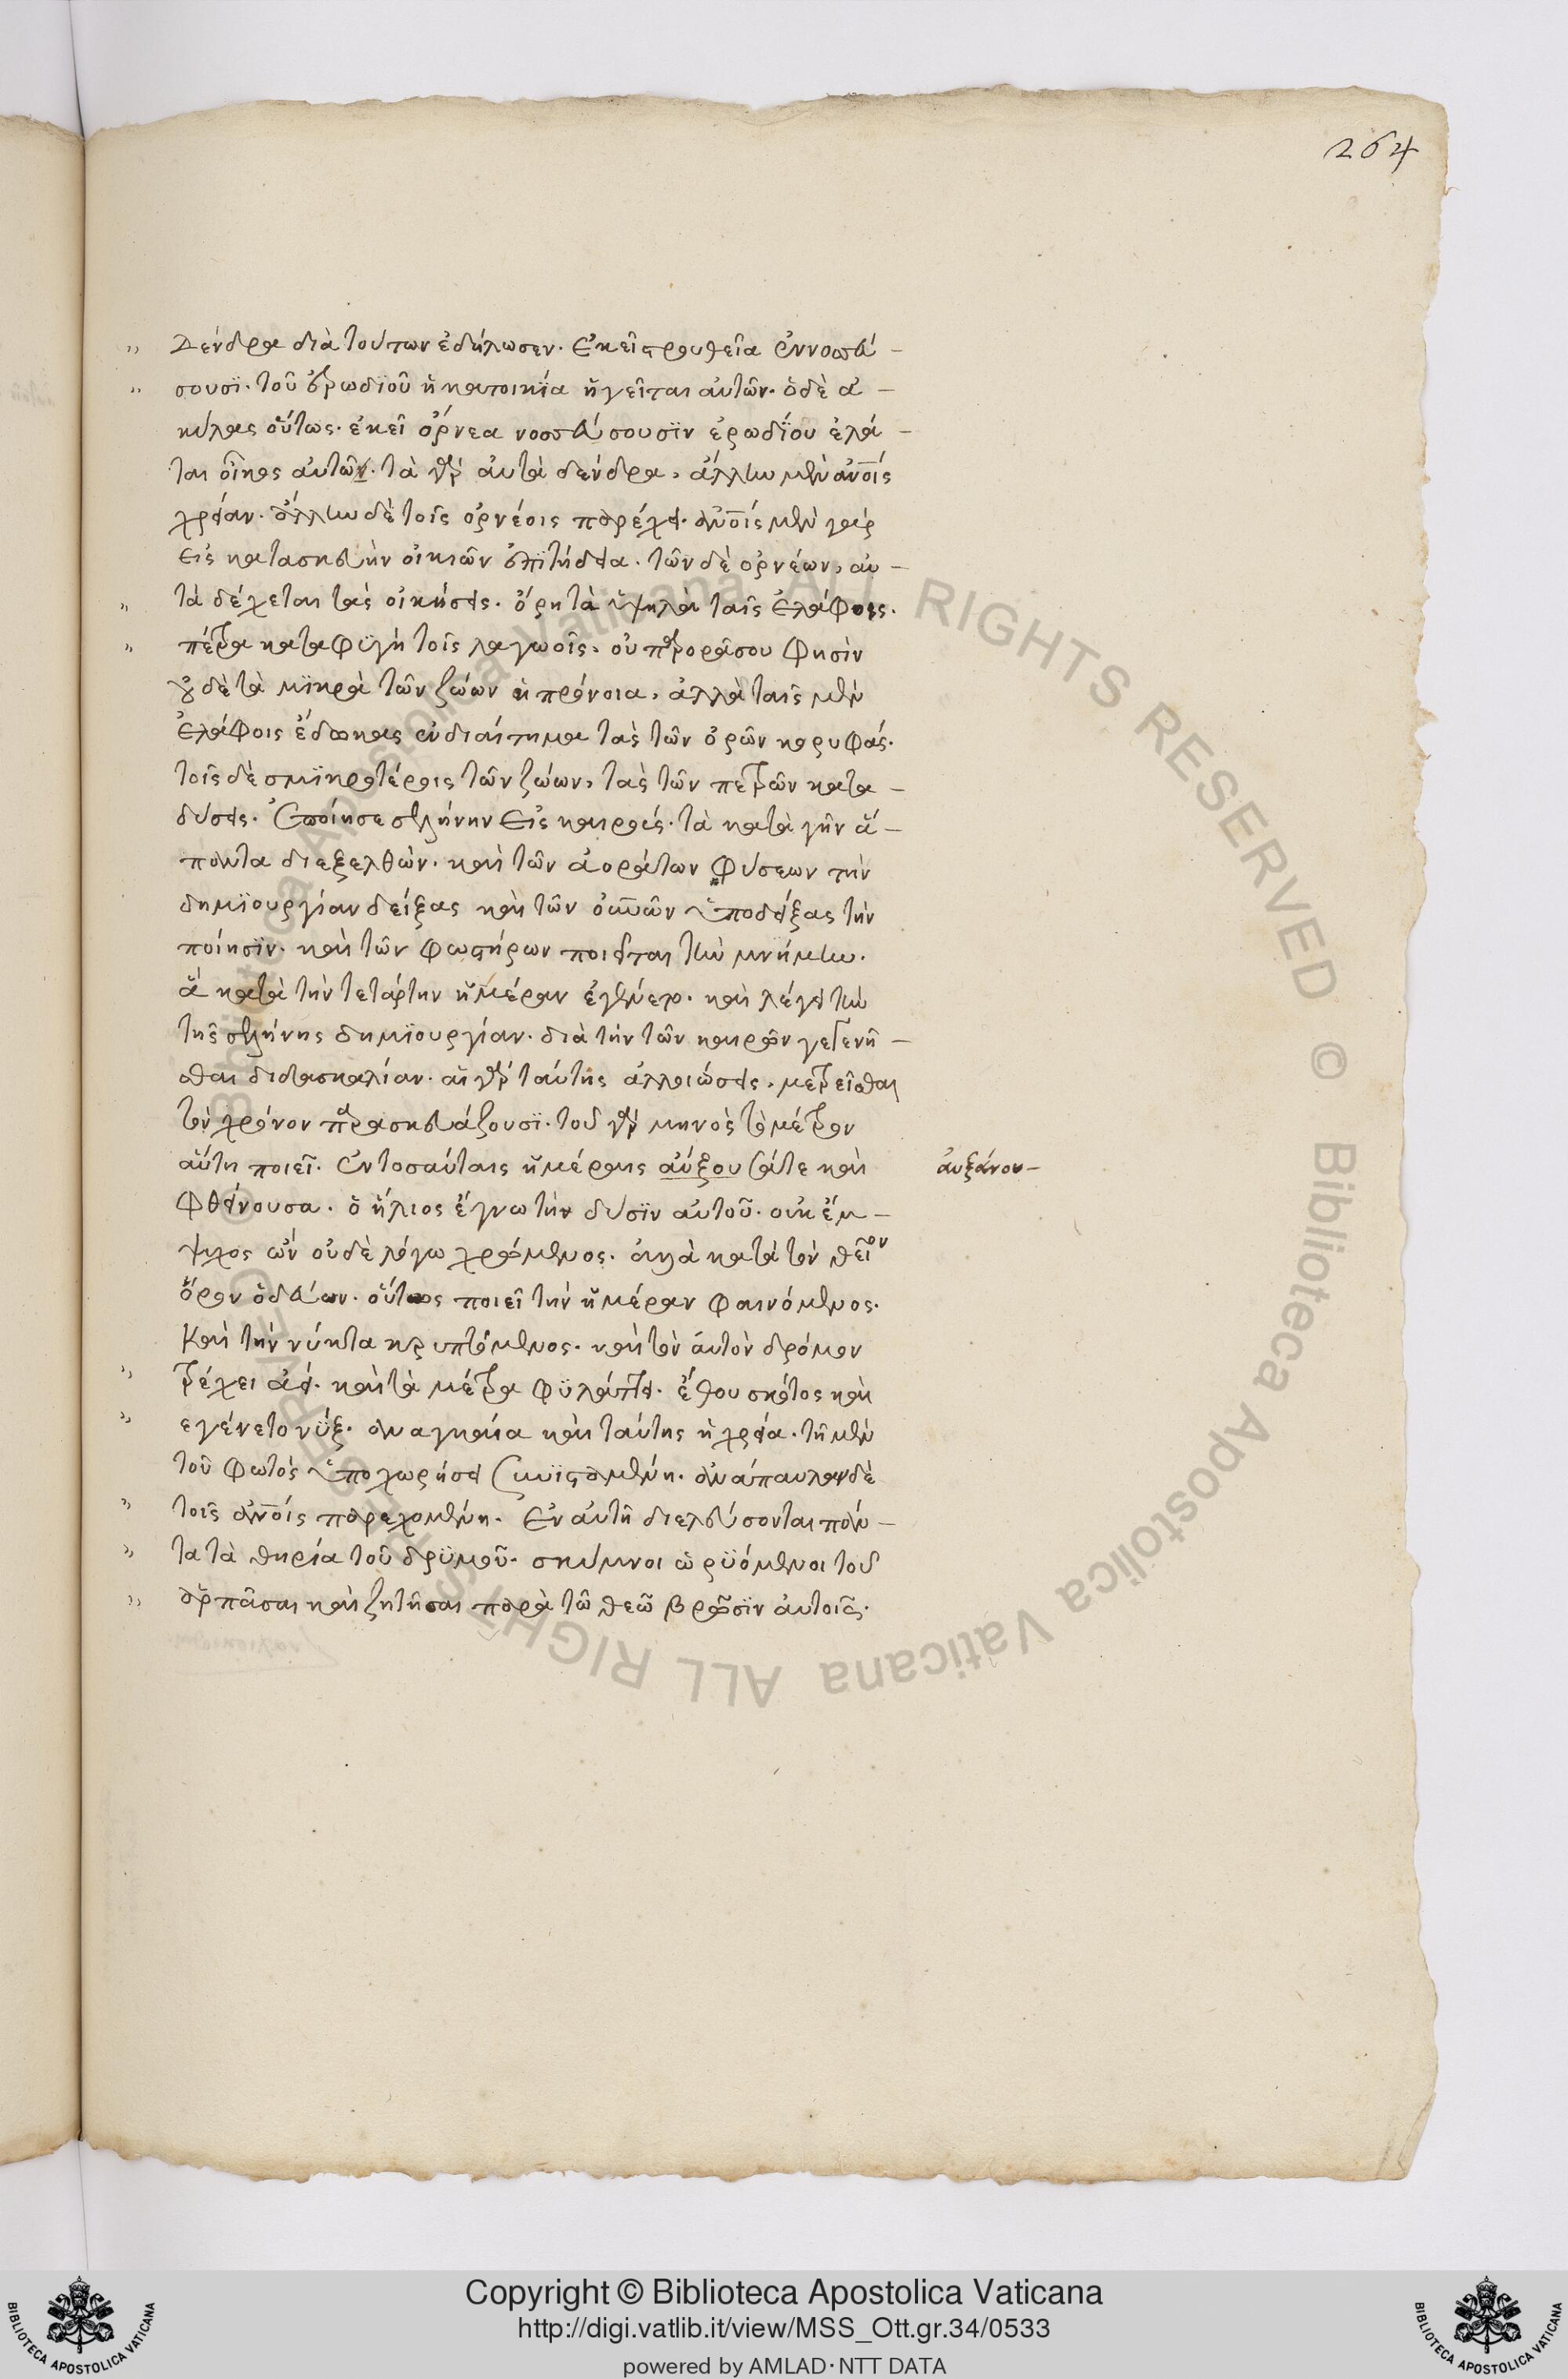 264
„ Δένδρα διὰ τούτων ἐδήλωσεν. Ἐκεῖ στρουθεῖα ἐννοσσεύ –
„ σουσϊ. τοῦ ἐρωδϊοῦ ἡ κατοικΐα ἡγεῖται αὐτῶν. ὁ δὲ ἀ –
κύλας οὕτως. ἐκεῖ ὄρνεα νοσσεύσουσϊν ἐρωδΐου ἐλά –
ται οἶκος αὐτῶν. τὰ γὰρ ἀυτὰ δένδρα, ἄλλην μὲν ἀν̅οις
χρείαν. ἄλλην δὲ τοῖς ὀρνέοις παρέχει. ἀν̅οις μὲν γάρ
Εἰς κατασκευὴν οἰκιῶν ἐπϊτήδεια. τῶν δὲ ὀρνέων, αὐ –
„ τὰ δέχεται τὰς οἰκήσεις. ὄρη τὰ ὑψηλὰ ταῖς ἐλάφοις.
„ πέτρα καταφϋγὴ τοῖς λαγωοῖς. οὐ παρορᾷ σου φησὶν
οὐδὲ τὰ μϊκρὰ τῶν ζώων ἡ πρόνοια, ἀλλὰ ταῖς μὲν
ἐλάφοις ἔδωκας ἐνδιαίτημα τὰς τῶν ὀρῶν κορυφάς.
τοῖς δὲ σμϊκροτέροις τῶν ζώων, τὰς τῶν πετρῶν κατα –
δύσεις. Ἐποίησε σελήνην Εἰς καιρούς. τὰ κατὰ γῆν ἅ –
παντα διεξελθὼν. καὶ τῶν ἀοράτων φύσεων τὴν
δημϊουργίαν δείξας καὶ τῶν οὐ̅νῶν ὑποδείξας τὴν
ποίησϊν. καὶ τῶν φωστήρων ποιεῖται τὴν μνήμην.
ἃ κατὰ τὴν τετάρτην ἡμέραν ἐγένετο. καὶ λέγει τὴν
τῆς σελήνης δημϊουργίαν. διὰ τὴν τῶν καιρῶν γεγενῆ –
σθαι διδασκαλίαν. αἱ γὰρ ταύτης ἀλλοιώσεις, μετρεῖσθαι
τὸν χρόνον παρασκευάζουσϊ. τοῦ γὰρ μηνὸς τὸ μέτρον
αὕτη ποιεῖ. Ἐν τοσαύταις ἡμέραις αὔξουσά τε καὶ ἀυξάνου–
φθίνουσα. ὁ ἥλιος ἔγνω τὴν δύσϊν αὐτοῦ. οὐκ ἔμ –
ψυχος ὢν οὐδὲ λόγω χρώμενος. ἀλλὰ κατὰ τὸν θεῖον
ὅρον ὁδεύων. οὕτως ποιεῖ τὴν ἡμέραν φαινόμενος.
Καὶ τὴν νύκτα κρυπτόμενος. καὶ τὸν αὐτὸν δρόμον
„ τρέχει ἀεί. καὶ τὰ μέτρα φϋλάττει. ἔθου σκότος καὶ
„ εγένετο νὺξ. ἀναγκαία καὶ ταύτης ἡ χρεία. τῆ μὲν
τοῦ φωτὸς ὑποχωρήσει συνϊσταμένη. ἀνάπαυλαν δὲ
„ τοῖς ἀν̅οις παρεχομένη. Ἐν ἀυτῆ διελεύσονται πάν –
„ τα τὰ θηρία τοῦ δρϋμοῦ. σκύμνοι ὠρϋόμενοι τοῦ
„ ἁρπᾶσαι καὶ ζητῆσαι παρὰ τῶ θεῶ βρῶσϊν ἀυτοῖς.
Copyright © Biblioteca Apostolica Vaticana
http://digi.vatlib.it/view/MSS_Ott.gr.34/0533
powered by AMLAD·NTT DATA